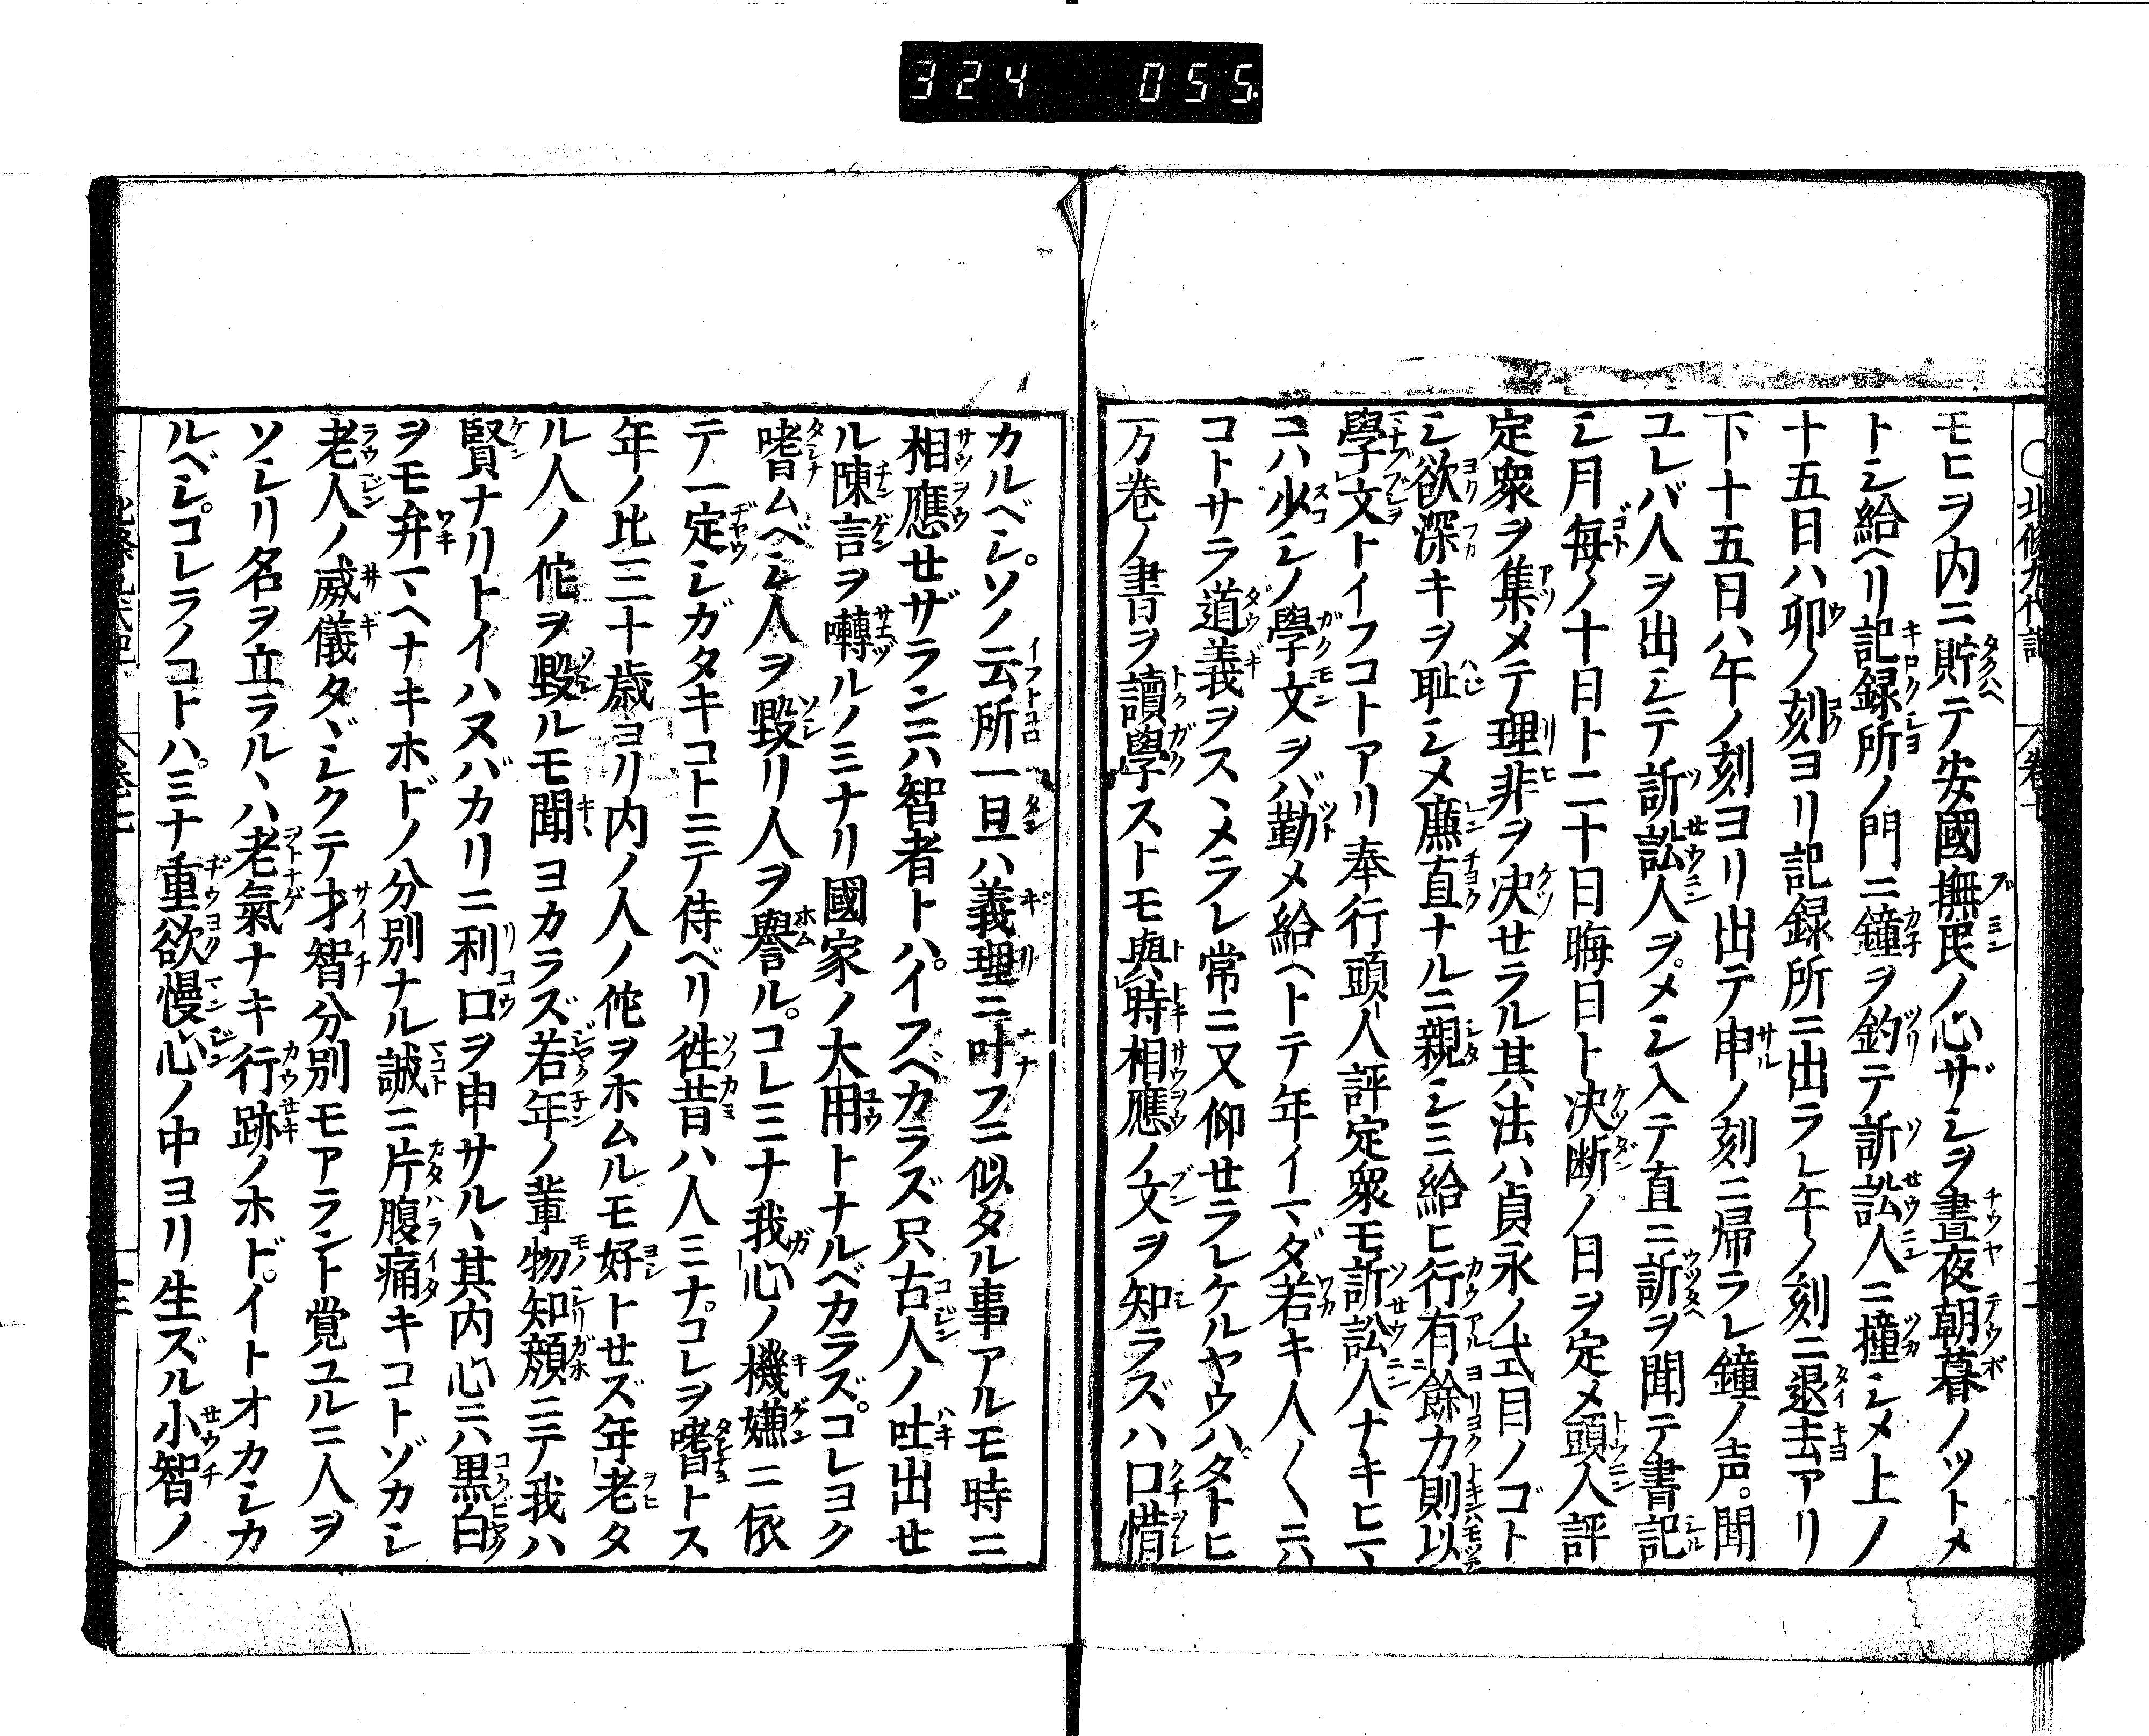 324 055
モヒヲ内ニ貯テ安國撫民ノ心ザシヲ晝夜朝暮ノツトメ
トシ給ヘリ記録所ノ門ニ鐘ヲ釣テ訴訟人ニ撞シメ上ノ
十五日ハ卯ノ刻ヨリ記録所ニ出ラレ午ノ刻ニ退去アリ
下十五日ハ午ノ刻ヨリ出テ申ノ刻ニ帰ラレ鐘ノ声。聞
ユレバ人ヲ出シテ訴訟人ヲメシ入テ直ニ訴ヲ聞テ書記
シ月毎ノ十日ト二十日晦日ト决断ノ日ヲ定メ頭人評
定衆ヲ集メテ理非ヲ决せラル其法ハ貞永ノ式目ノゴト
シ欲深キヲ耻シメ廉直ナルニ親シミ給ヒ行有餘力則以
學文トイフコトアリ奉行頭人評定衆モ訴訟人ナキヒマ
ニハ少シノ學文ヲバ勤メ給ヘトテ年イマダ若キ人〱ニハ
コトサラ道義ヲスヽメラレ常ニ又仰せラレケルヤウハタトヒ
万巻ノ書ヲ讀學ストモ與時相應ノ文ヲ知ラズハ口惜
カルベシ。ソノ云所一旦ハ義理ニ叶フニ似タル事アルモ時ニ
相應せザランニハ智者トハ。イフベカラズ只古人ノ吐出せ
ル陳言ヲ囀ルノミナリ國家ノ大用トナルベカラズ。コレヨク
嗜ムベシ人ヲ毀リ人ヲ譽ル。コレミナ我心ノ機嫌ニ依
テ一定シガタキコトニテ侍ベリ徃昔ハ人ミナ。コレヲ嗜トス
年ノ比三十歳ヨリ内ノ人ノ侘ヲホムルモ好トせズ年老タ
ル人ノ侘ヲ毀ルモ聞ヨカラズ若年ノ輩物知顔ニテ我ハ
賢ナリトイハヌバカリニ利口ヲ申サルヽ其内心ニハ黒白
ヲモ弁マヘナキホドノ分別ナル誠ニ片腹痛キコトゾカシ
老人ノ威儀タヾシクテ才智分別モアラント覚ユルニ人ヲ
ソシリ名ヲ立ラルヽハ老氣ナキ行跡ノホド。イトオカシカ
ルベシ。コレラノコトハ。ミナ重欲慢心ノ中ヨリ生ズル小智ノ